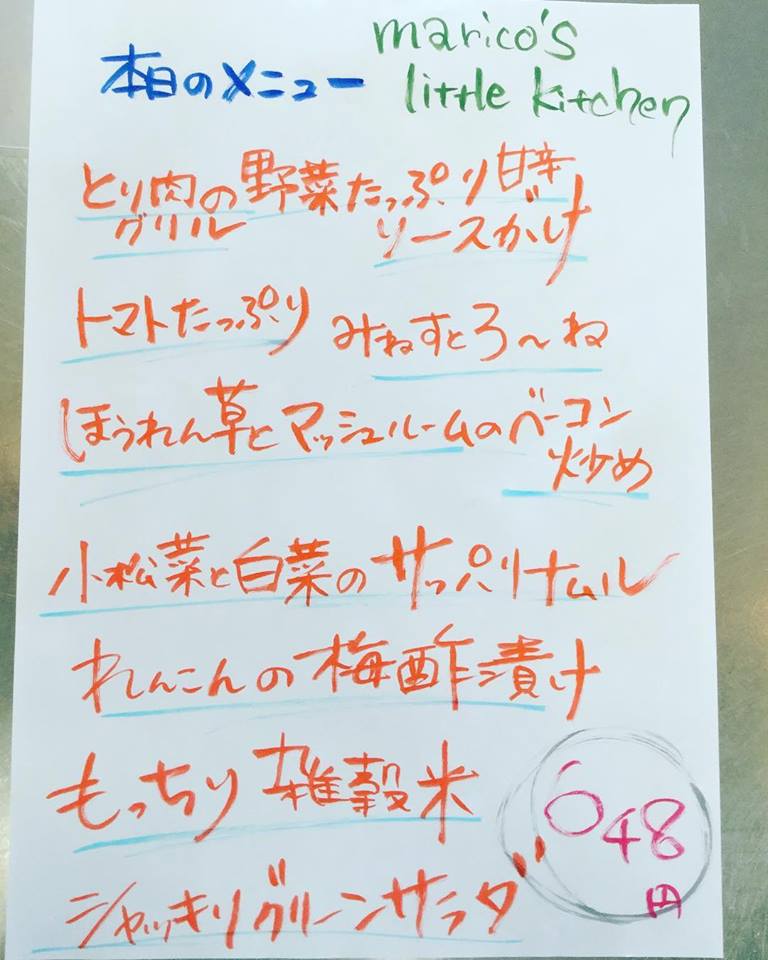 marico's
本日のメニュー
little kitchen
とり肉の野菜たっぷり甘辛
グリル ソースがけ
トマトたっぷり みねすとろ〜ね
ほうれん草とマッシュルームのベーコン
炒め
小松菜と白菜のサッパリナムル
れんこんの梅酢漬け
もっちり雑穀米
シャッキリグリーンサラダ
648
円